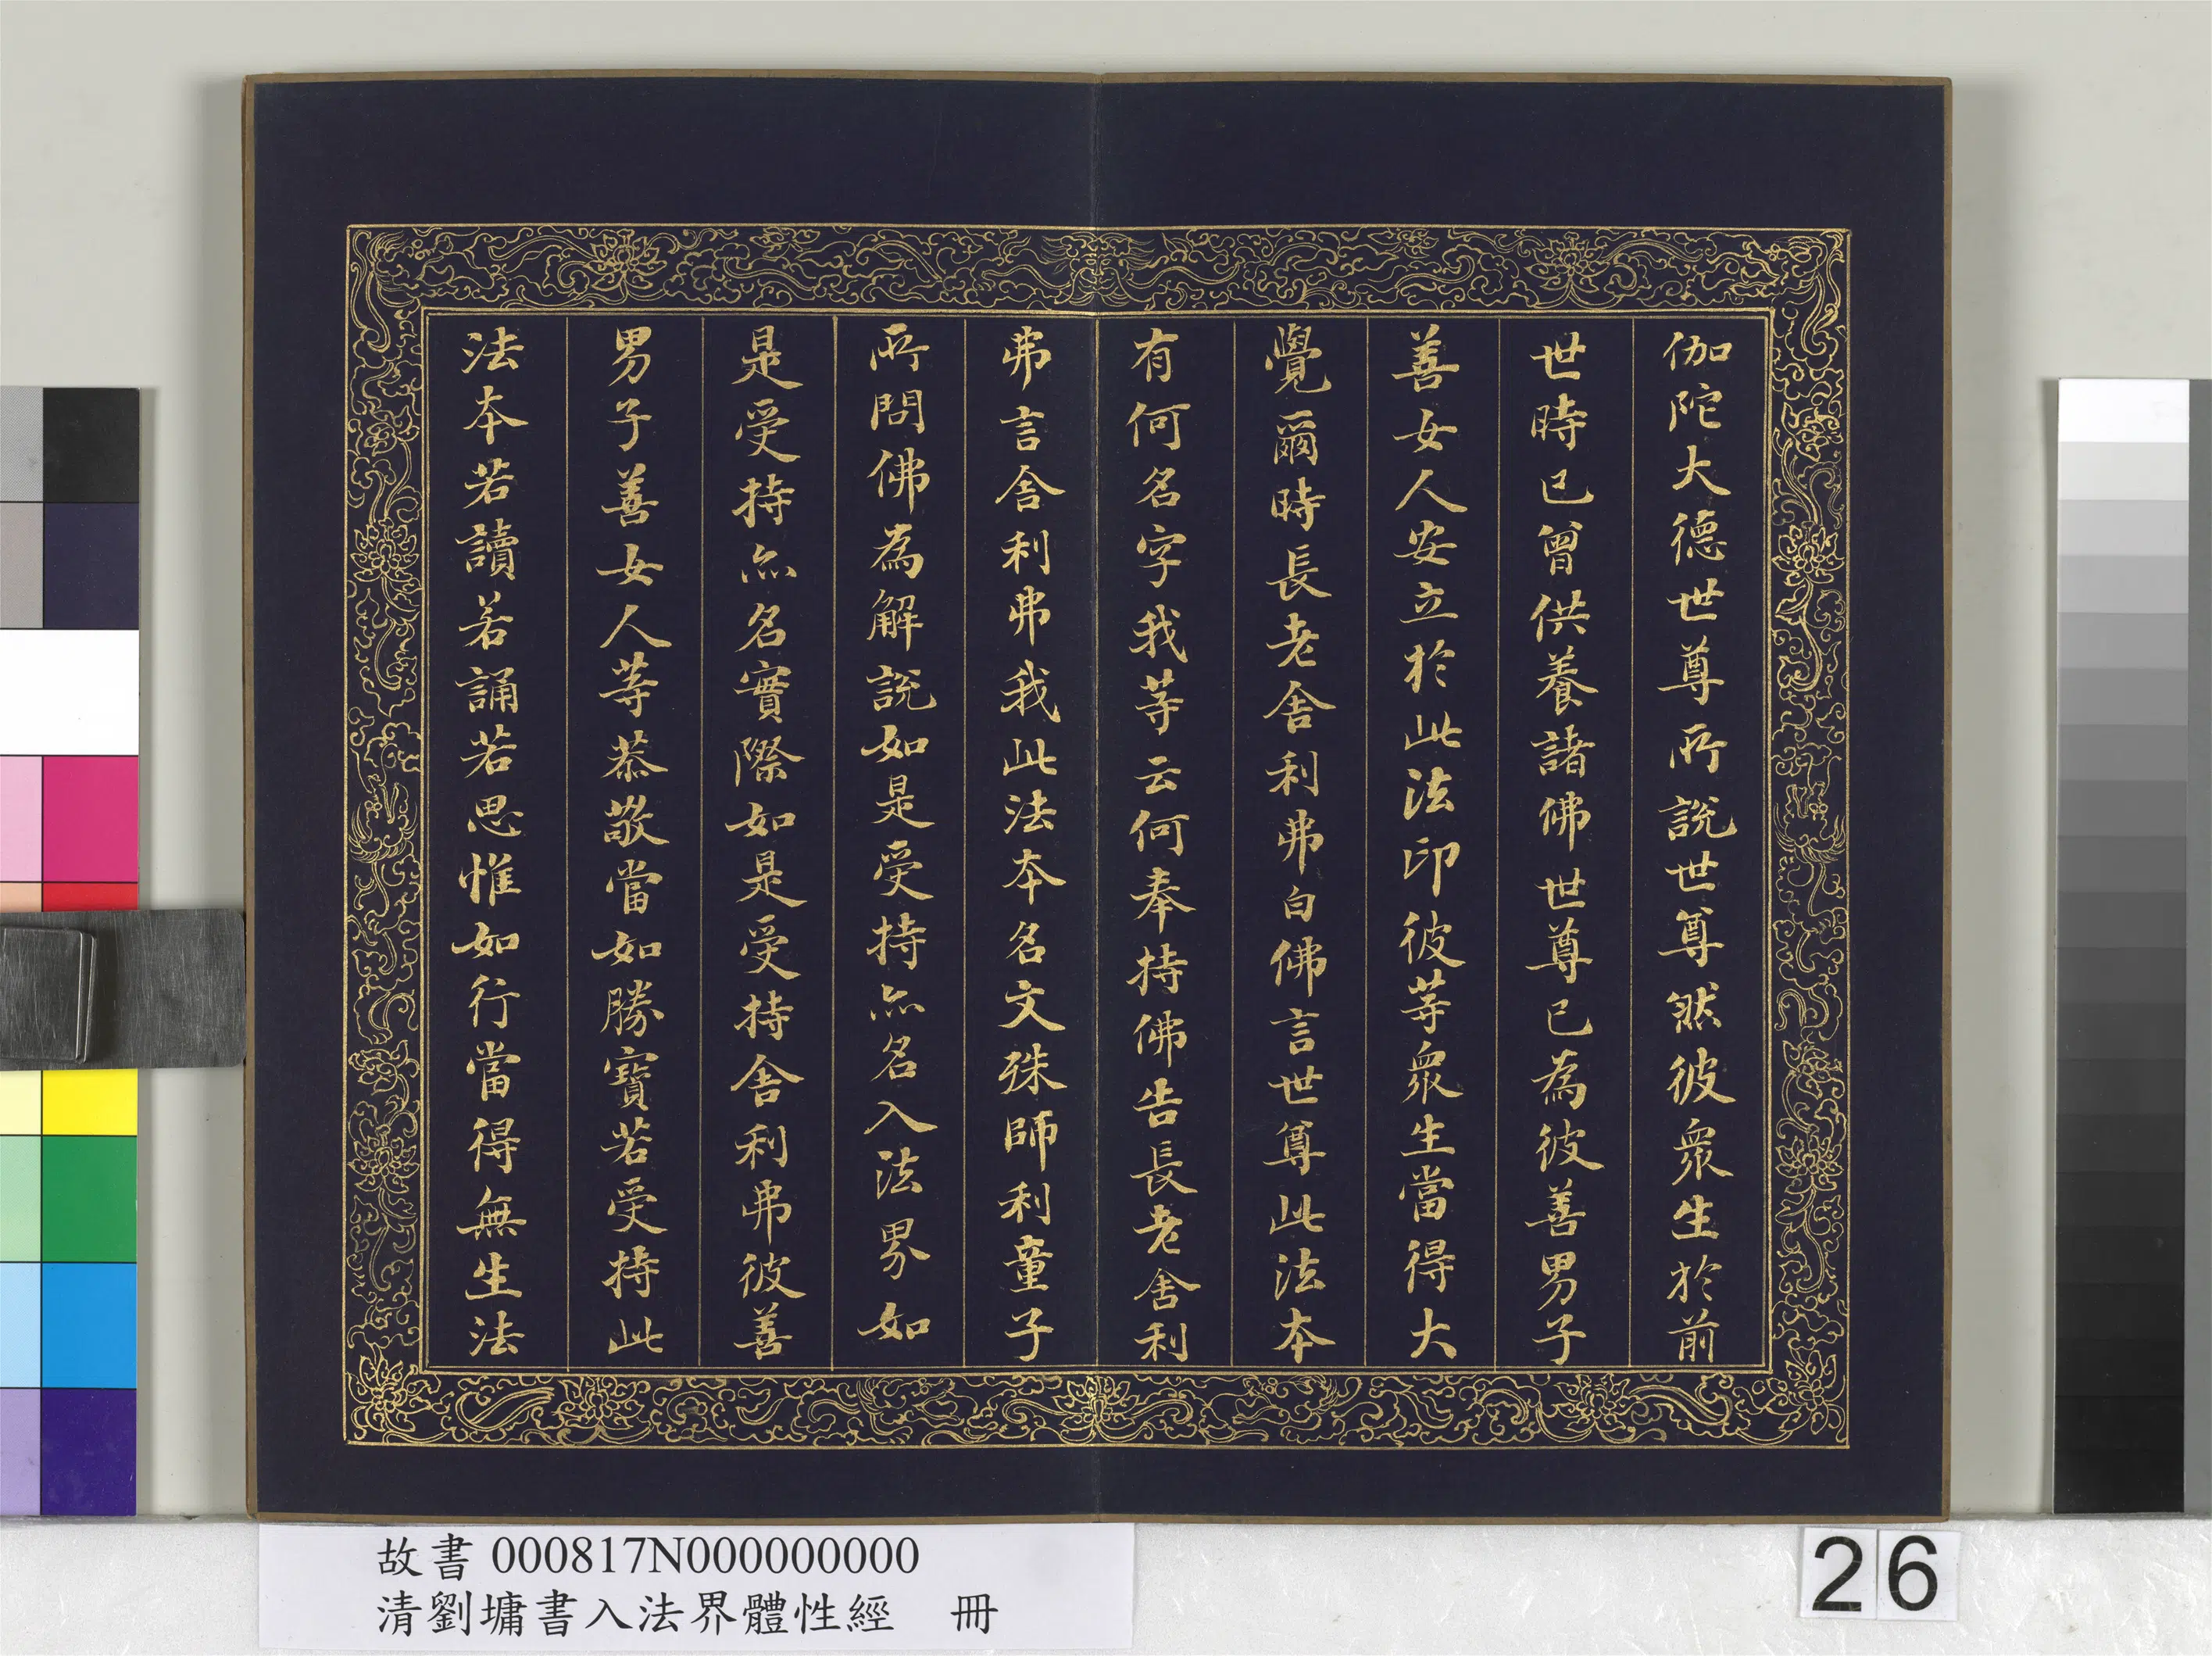 伽陀大德世尊所說世尊然彼衆生於前
世時已曾供養諸佛世尊已為彼善男子
善女人安立於此法印彼等衆生當得大
覺爾時長老舍利弗白佛言世尊此法本
有何名字我等云何奉持佛告長老舍利
弗言舍利弗我此法本名文殊師利童子
所問佛為解說如是受持亦名入法界如
是受持亦名實際如是受持舍利弗彼善
男子善女人等恭敬當如勝寶若受持此
法本若讀若誦若思惟如行當得無生法
故書 000817N000000000
清劉墉書入法界體性經 冊
26